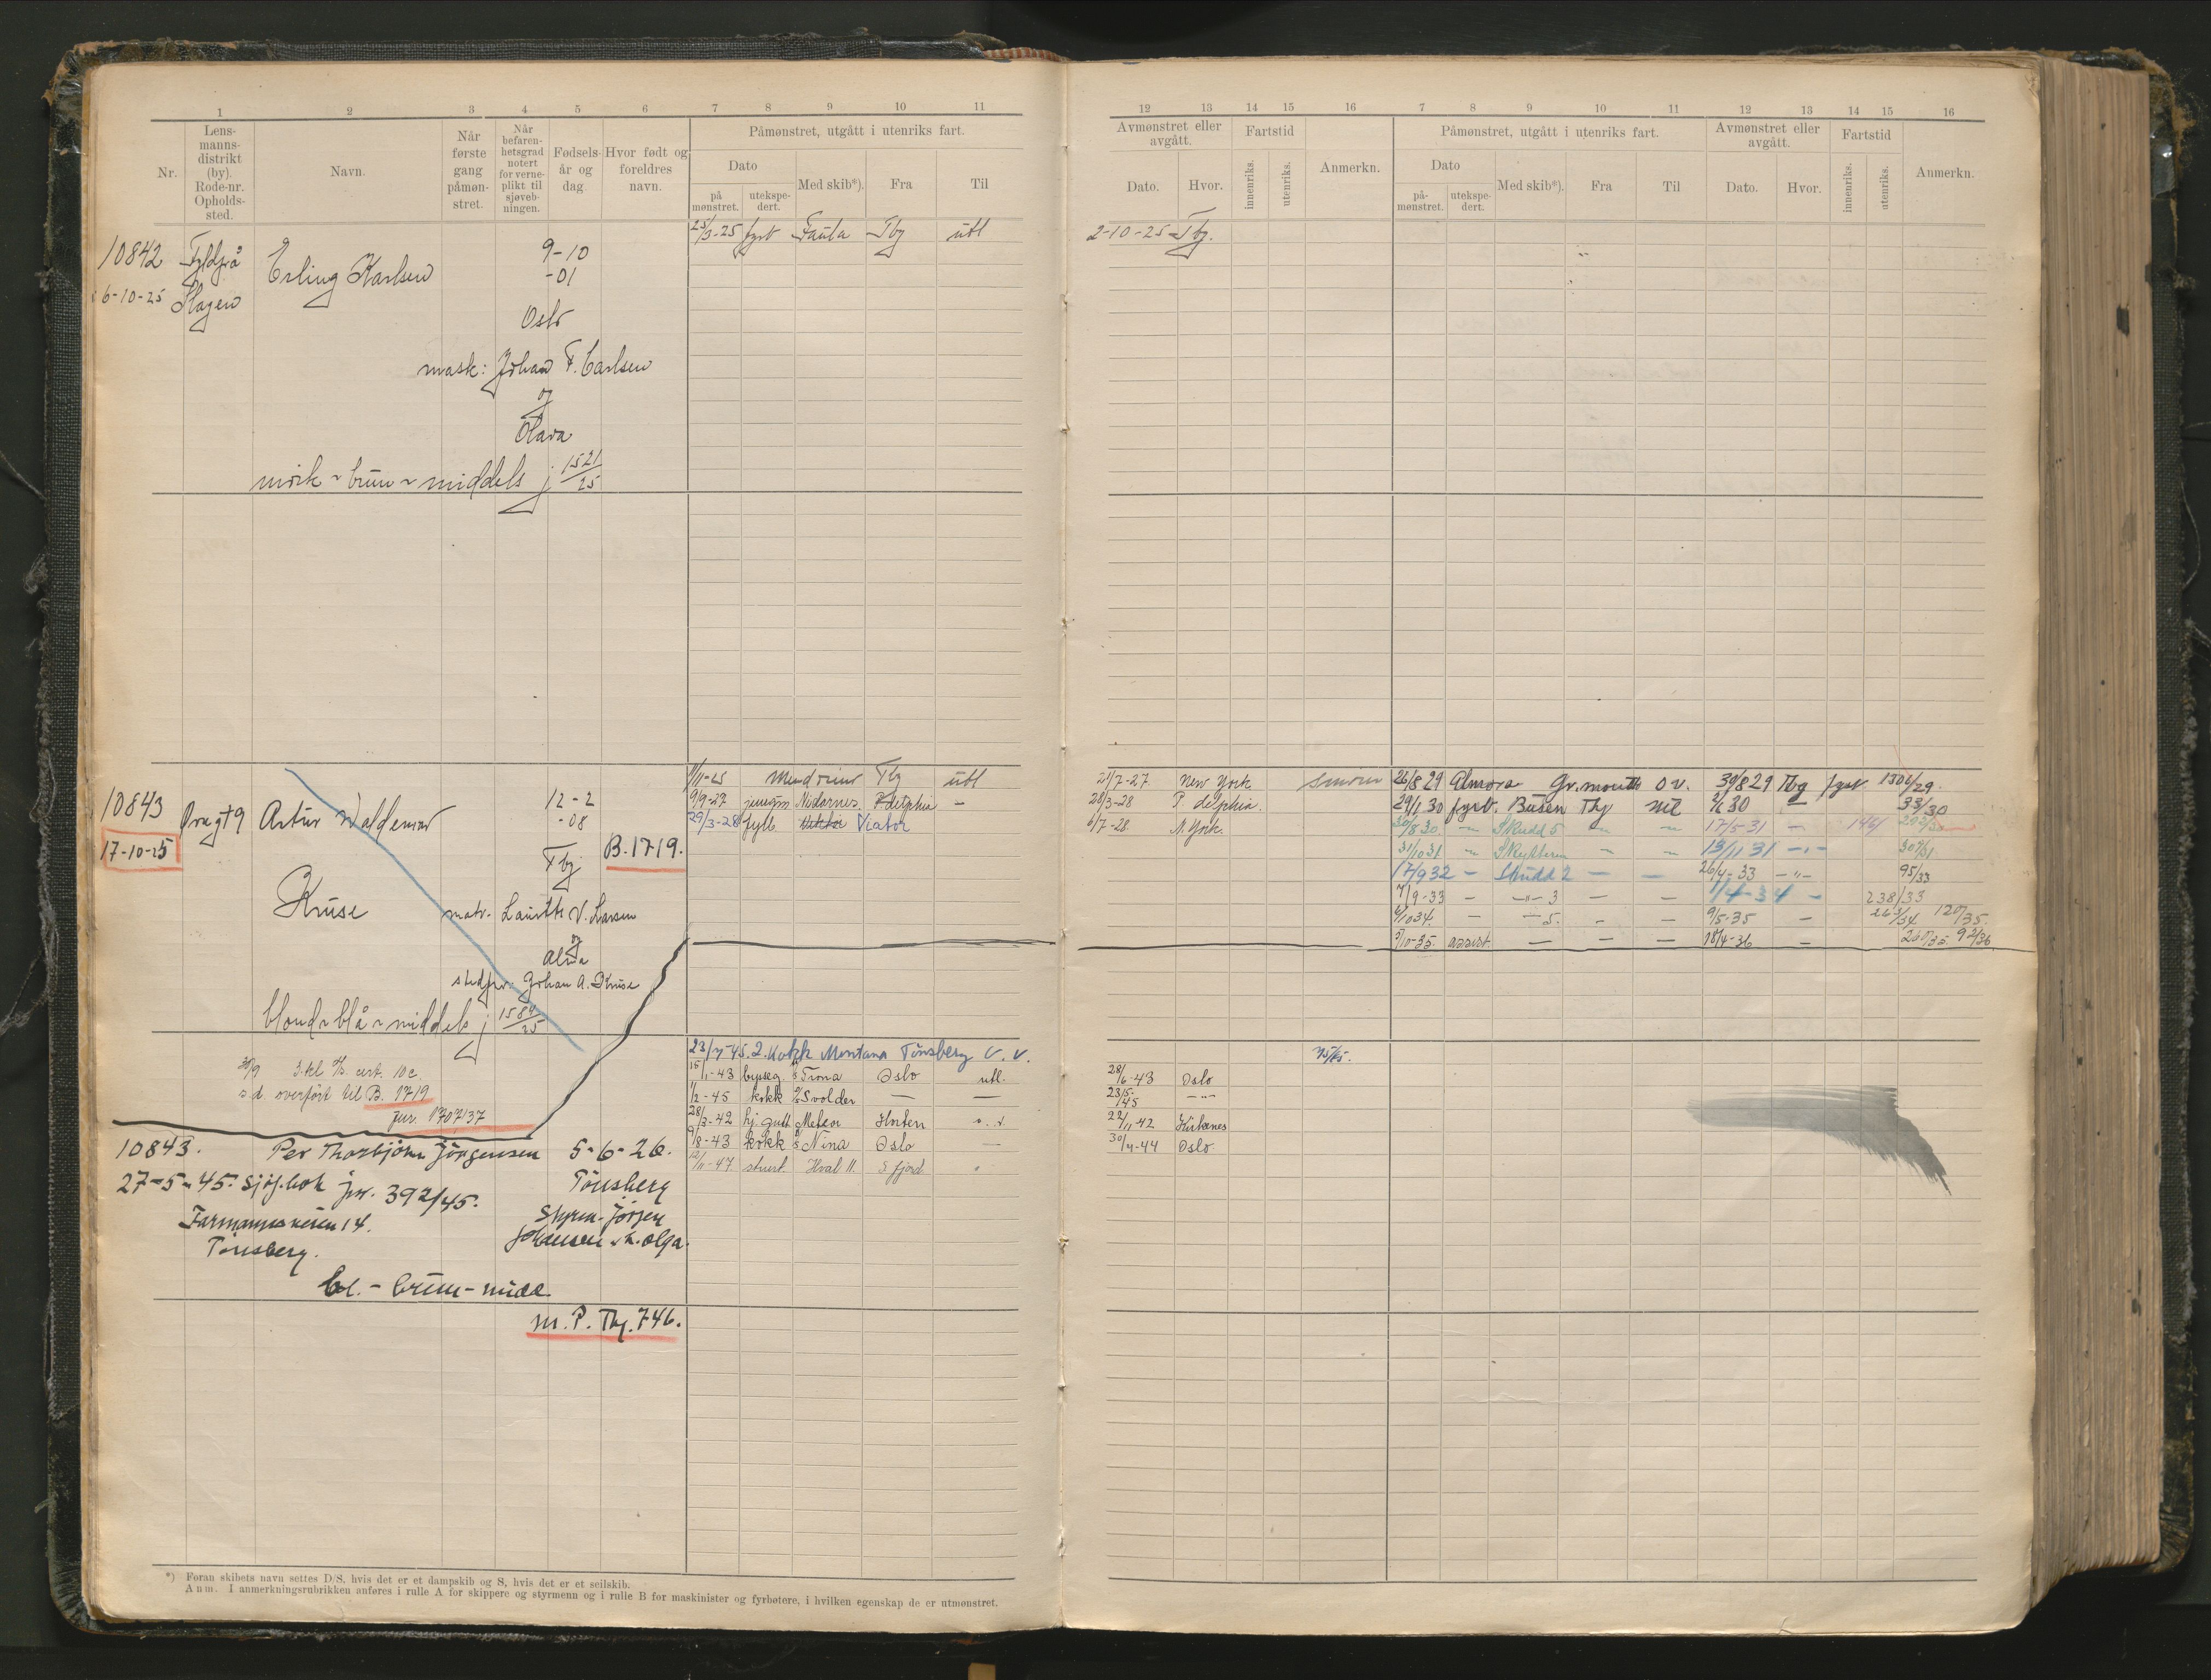 1 2 3 4 5 6 7 8 9 10 11
Nr.
Lens-
manns-
distrikt
(by).
Rode-nr.
Opholds-
sted.
Navn.
Når
første
gang
påmøn-
stret.
Når
befaren-
hetsgrad
notert
for verne-
plikt til
sjøveb-
ningen.
Fødsels-
år og
dag.
Hvor født og
foreldres
navn.
Påmønstret, utgått i utenriks fart.
Dato
på
mønstret.
utekspe-
dert.
Med skib*).
Fra
Til
10842
6-10-25 Slagen
Erling Karlsen
9-10
-01
Oslo
mask: Johan F. Carlsen
og
Olava
mørk - brun - middels j 1521/25
25/3-25 fyrb Faula Tbg utl
10843
17-10-25
Artur Valdemar
Kruse
12-2
-08
Tbg
B.1719.
matr. V. Larsen
og
Alma
stedfar: Johan A. Kruse
blond - blå - middels j 1584/25
11-25 Tbg utl
9/9-27 Nidarnes P delphia -
29/3-28 fyrb Viator
30/9 3.kl cert. 10 c
s.d. overført til B. 1719
jur. 1707/37
10843. Per Thorbjørn Jørgensen 5-6-26.
27-5-45. sjøf.bok jnr. 392/45. Tönsberg
Farmannsveien 14.
Tönsberg.
Jørgen
Johansen Olga.
bl. - brun - midd
m. P. Tbg. 746.
23/7-45. 2. kokk Montana Tönsberg U. v.
15/1-43 bysseg Trona Oslo utl.
1/2-45 kokk Svolder — —
28/3-42 hj. gutt Meteor Horten
9/8-43 kokk Nina Oslo —
12/11-47 Hval II S fjord "
*) Foran skibets navn settes D/S, hvis det er et dampskib og S, hvis det er et seilskib.
Anm. I anmerkningsrubrikken anføres i rulle A for skippere og styrmenn og i rulle B for maskinister og fyrbøtere, i hvilken egenskap de er utmønstret.
12 13 14 15 16 7 8 9 10 11 12 13 14 15 16
Avmønstret eller
avgått.
Dato.
Hvor.
Fartstid
innenriks.
utenriks.
Anmerkn.
Påmønstret, utgått i utenriks fart.
Dato
på-
mønstret.
utekspe-
dert.
Med skib*).
Fra
Til
Avmønstret eller
avgått.
Dato.
Hvor.
Fartstid
innenriks.
utenriks.
Anmerkn.
2-10-25 Tbg.
21/7-27. New York smører 26/8 29 Almora Gr.mouth o v. 30/8 29 Tbg fyrb 1302/29.
28/3-28 P. delphia. 29/1 30 fyrb. Busen Tbg 30 — 33/30
6/7-28 N. York. 30/8 30. — Skudd 5 — — 17/5-31 — 146/
31/10 31 — Skytteren — — 13/11 31 -"- 307/31
17/9 32 — Skudd 2 — — 26/4-33 -"- 95/33
7/9-33 — -"- 3 — — 1/4-34 — 238/33
10 34. — — 5. — — 9/5-35 — 263/34 120/35.
10-35. assist. — — — 18/4-36 — 260/35. 92/36.
35/45.
28/6-43 Oslo
23/5-/45 -"-
22/11-42 Kirkenes
30/4-44 Oslo